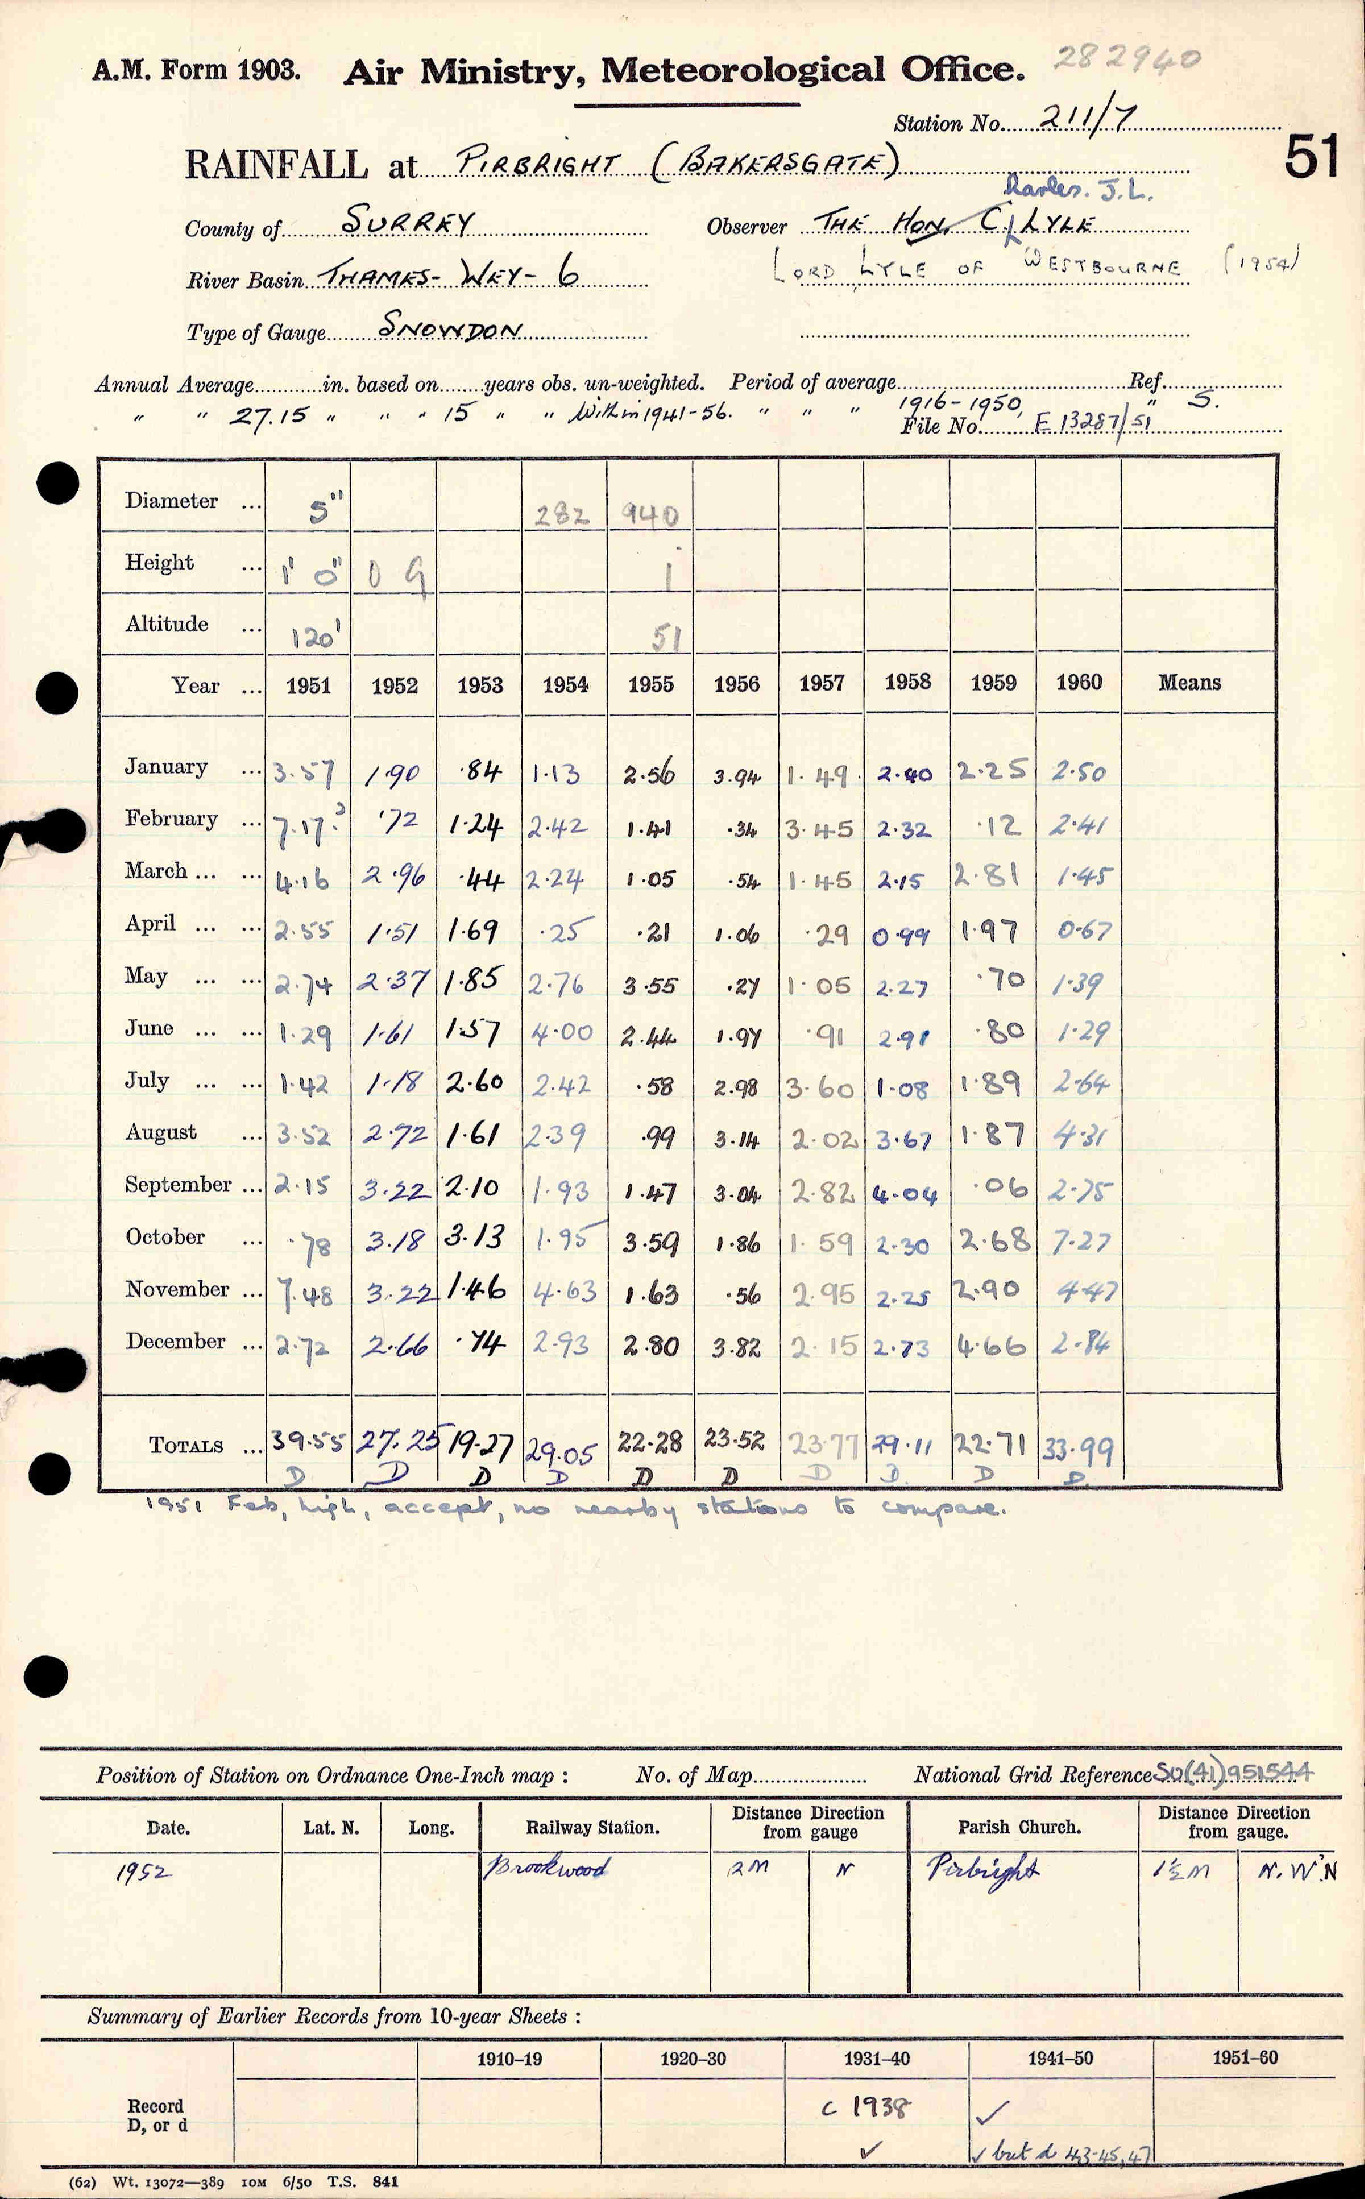 A.M. Form 1903. Air Ministry, Meteorological Office. 282940
Station No. 211/7
51
RAINFALL at PIRBRIGHT (BAKERSGATE)
Charles. J.L.
County of SURREY Observer THE HON. C. LYLE
River Basin THAMES - WEY - 6 LORD LYLE OF WESTBOURNE (1954)
Type of Gauge SNOWDON
Annual Average in. based on years obs. un-weighted. Period of average Ref.
" " 27.15 " " " 15 " " Within 1941-56. " " " 1916-1950, " S.
File No. E 13287/51
Diameter ... 5" 282 940
Height ... 1' 0" 0 9 1
Altitude ... 120' 51
Year ... 1951 1952 1953 1954 1955 1956 1957 1958 1959 1960 Means
January ... 3.57 1.90 .84 1.13 2.56 3.94 1.49 2.40 2.25 2.50
February ... 7.17? .72 1.24 2.42 1.41 .34 3.45 2.32 .12 2.41
March ... ... 4.16 2.96 .44 2.24 1.05 .54 1.45 2.15 2.81 1.45
April ... ... 2.55 1.51 1.69 .25 .21 1.06 .29 0.99 1.97 0.67
May ... ... 2.74 2.37 1.85 2.76 3.55 .27 1.05 2.27 .70 1.39
June ... ... 1.29 1.61 1.57 4.00 2.44 1.97 .91 2.91 .80 1.29
July ... ... 1.42 1.18 2.60 2.42 .58 2.98 3.60 1.08 1.89 2.64
August ... 3.52 2.72 1.61 2.39 .99 3.14 2.02 3.67 1.87 4.31
September ... 2.15 3.22 2.10 1.93 1.47 3.04 2.82 4.04 .06 2.75
October ... .78 3.18 3.13 1.95 3.59 1.86 1.59 2.30 2.68 7.27
November ... 7.48 3.22 1.46 4.63 1.63 .56 2.95 2.25 2.90 4.47
December ... 2.72 2.66 .74 2.93 2.80 3.82 2.15 2.73 4.66 2.84
TOTALS ... 39.55 27.25 19.27 29.05 22.28 23.52 23.77 29.11 22.71 33.99
D D D D D D D D D D
1951 Feb, high, accept, no nearby stations to compare.
Position of Station on Ordnance One-Inch map : No. of Map National Grid Reference SU(41)951544
Date. Lat. N. Long. Railway Station. Distance Direction from gauge Parish Church. Distance Direction from gauge.
1952 Brookwood 2M N Pirbright 1½M N.W'.N
Summary of Earlier Records from 10-year Sheets :
1910-19 1920-30 1931-40 1941-50 1951-60
Record c 1938 ✓
D, or d
✓ ✓ but d 43-45, 47
(62) Wt. 13072—389 10M 6/50 T.S. 841